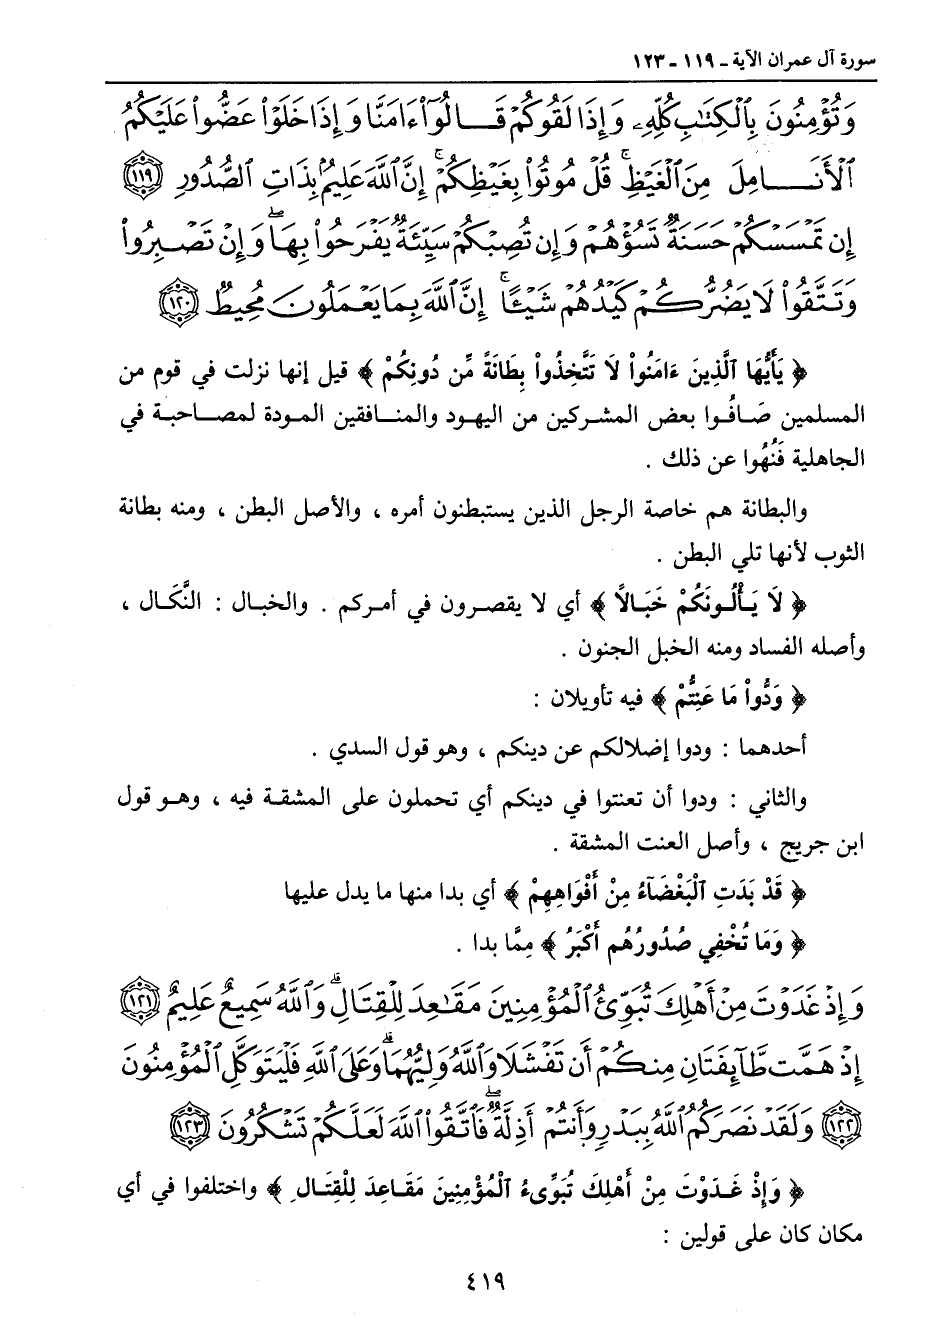 سورة آل عمران الآية ـ ١١٩ ـ ١٢٣
وَتُؤْمِنُونَ بِٱلْكِتَٰبِ كُلِّهِۦ وَإِذَا لَقُوكُمْ قَالُوٓا۟ ءَامَنَّا وَإِذَا خَلَوْا۟ عَضُّوا۟ عَلَيْكُمُ
ٱلْأَنَامِلَ مِنَ ٱلْغَيْظِ ۚ قُلْ مُوتُوا۟ بِغَيْظِكُمْ ۗ إِنَّ ٱللَّهَ عَلِيمٌۢ بِذَاتِ ٱلصُّدُورِ ١١٩
إِن تَمْسَسْكُمْ حَسَنَةٌ تَسُؤْهُمْ وَإِن تُصِبْكُمْ سَيِّئَةٌ يَفْرَحُوا۟ بِهَا ۖ وَإِن تَصْبِرُوا۟
وَتَتَّقُوا۟ لَا يَضُرُّكُمْ كَيْدُهُمْ شَيْـًٔا ۗ إِنَّ ٱللَّهَ بِمَا يَعْمَلُونَ مُحِيطٌ ١٢٠
﴿ يَأَيُّهَا ٱلَّذِينَ ءَامَنُوا۟ لَا تَتَّخِذُوا۟ بِطَانَةً مِّن دُونِكُمْ ﴾ قيل إنها نزلت في قوم من
المسلمين صَافُوا بعض المشركين من اليهود والمنافقين المودة لمصاحبة في
الجاهلية فَنُهُوا عن ذلك .
والبطانة هم خاصة الرجل الذين يستبطنون أمره ، والأصل البطن ، ومنه بطانة
الثوب لأنها تلي البطن .
﴿ لَا يَأْلُونَكُمْ خَبَالاً ﴾ أي لا يقصرون في أمركم . والخبال : النَّكَال ،
وأصله الفساد ومنه الخبل الجنون .
﴿ وَدُّوا۟ مَا عَنِتُّمْ ﴾ فيه تأويلان :
أحدهما : ودوا إضلالكم عن دينكم ، وهو قول السدي .
والثاني : ودوا أن تعنتوا في دينكم أي تحملون على المشقة فيه ، وهو قول
ابن جريج ، وأصل العنت المشقة .
﴿ قَدْ بَدَتِ ٱلْبَغْضَآءُ مِنْ أَفْوَاهِهِمْ ﴾ أي بدا منها ما يدل عليها
﴿ وَمَا تُخْفِي صُدُورُهُم أَكْبَرُ ﴾ مِمَّا بدا .
وَإِذْ غَدَوْتَ مِنْ أَهْلِكَ تُبَوِّئُ ٱلْمُؤْمِنِينَ مَقَٰعِدَ لِلْقِتَالِ ۗ وَٱللَّهُ سَمِيعٌ عَلِيمٌ ١٢١
إِذْ هَمَّت طَّآئِفَتَانِ مِنكُمْ أَن تَفْشَلَا وَٱللَّهُ وَلِيُّهُمَا ۗ وَعَلَى ٱللَّهِ فَلْيَتَوَكَّلِ ٱلْمُؤْمِنُونَ
١٢٢ وَلَقَدْ نَصَرَكُمُ ٱللَّهُ بِبَدْرٍ وَأَنتُمْ أَذِلَّةٌ ۖ فَٱتَّقُوا۟ ٱللَّهَ لَعَلَّكُمْ تَشْكُرُونَ ١٢٣
﴿ وَإِذْ غَدَوْتَ مِنْ أَهْلِكَ تُبَوِّىءُ ٱلْمُؤْمِنِينَ مَقَاعِدَ لِلْقِتَالِ ﴾ واختلفوا في أي
مكان كان على قولين :
٤١٩